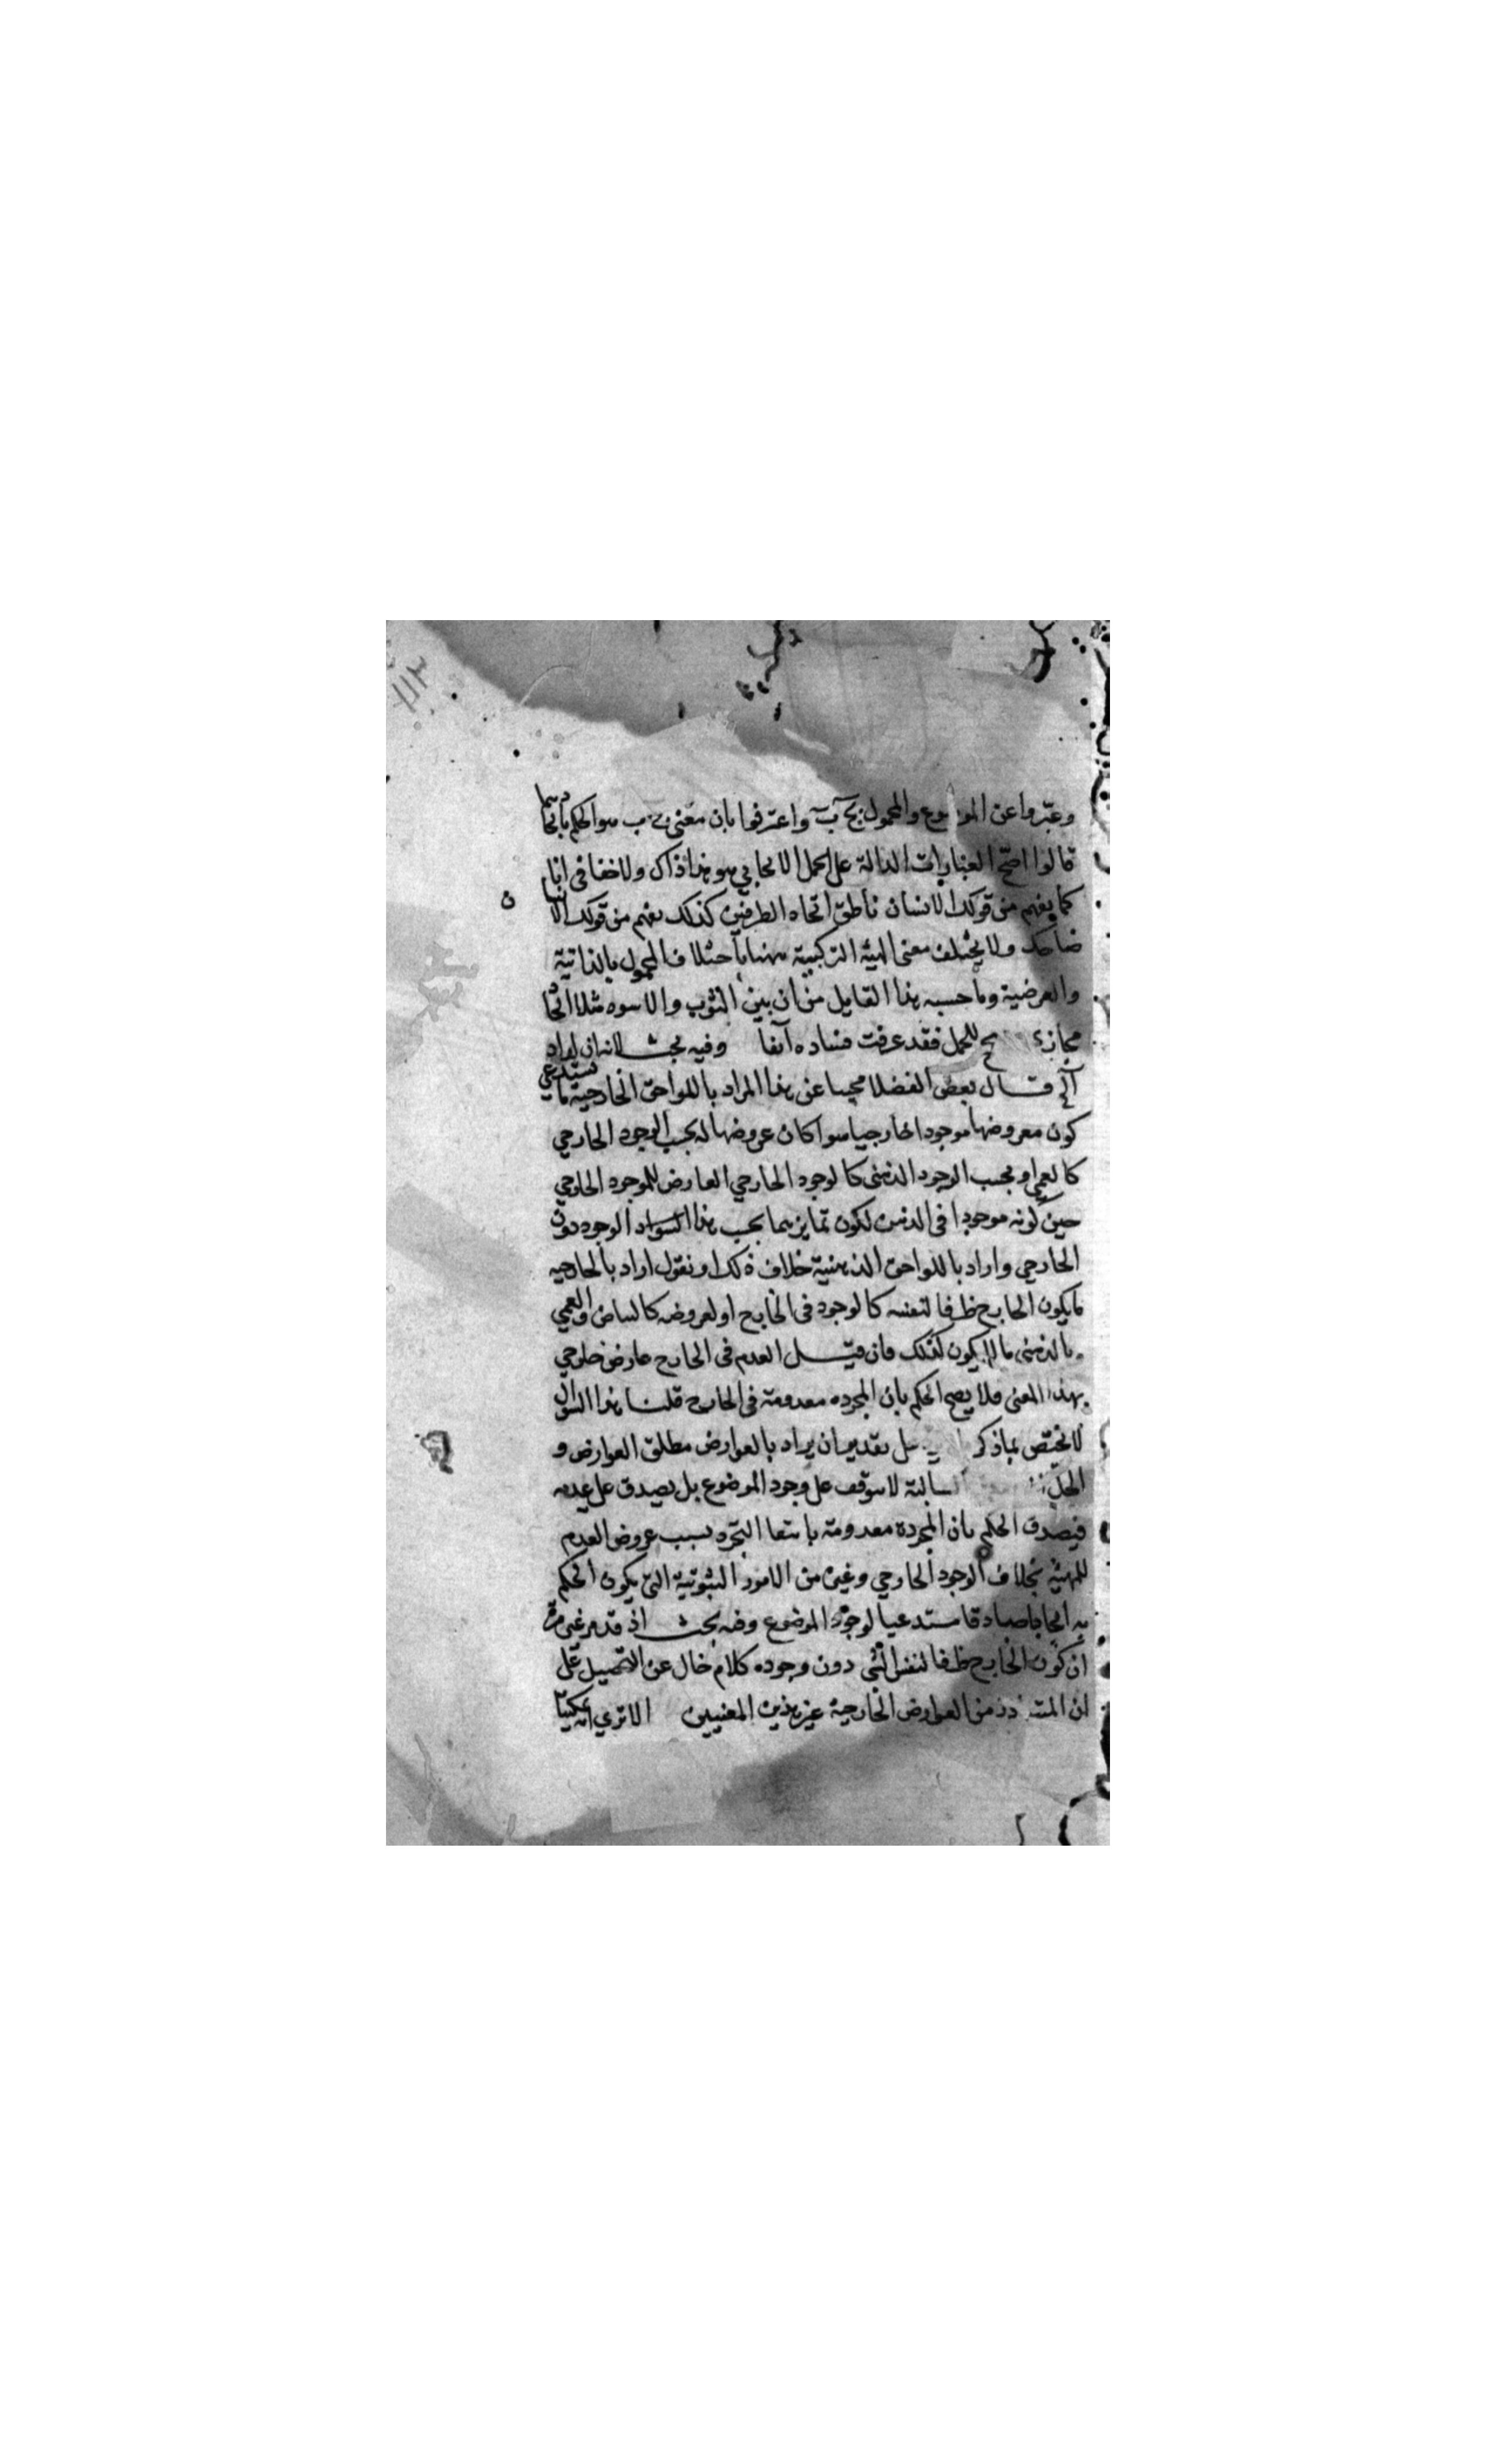 ١١٢
وعبّروا عن الموضوع والمحمول بج ب واعترفوا بان معنى ج ب هو الحكم باتحادهما
قالوا اصح العبارات الدالة على الحمل الايجابي هو هذا ذاك ولا خفا في انا
كما يفهم من قولك الانسان ناطق اتحاد الطرفين كذلك يفهم من قولك الانسان
ضاحك ولا يختلف معنى الهيئة التركيبية ههنا باختلاف المحمول بالذاتية
والعرضية وما حسبه هذا القايل من ان بين الثوب والاسود مثلا اتحا
مجازي للحمل فقد عرفت فساده آنفا وفيه بحث لانه ان اراد
آلخ قال بعض الفضلا مجيبا عن هذا المراد باللواحق الخارجية ما يستدعي
كون معروضها موجودا خارجيا سوا كان عروضها له بحسب الوجود الخارجي
كالعمى او بحسب الوجود الذهنى كالوجود الخارجي العارض للموجود الخارجي
حين كونه موجودا في الذهن لكون تمايزهما بحسب هذا الوجود دون
الخارجي واراد باللواحق الذهنية خلاف ذلك او نقول اراد بالخارجيه
ما يكون الخارج ظرفا لنفسه كالوجود في الخارج او لعروضه كالبياض والعمي
وبالذهنى ما لا يكون كذلك فان قيل العدم في الخارج عارض خارجي
بهذا المعنى فلا يصح الحكم بان المجرده معدومة في الخارج قلنا هذا السوال
لا يختص بما ذكر بل على تقدير ان يراد بالعوارض مطلق العوارض و
الحل السالبة لا يتوقف على وجود الموضوع بل يصدق على عدمه
فيصدق الحكم بان المجردة معدومة بانتفا التجرد بسبب عروض العدم
للمهية بخلاف الوجود الخارجي وغيره من الامور الثبوتية التي يكون الحكم
به ايجابا صادقا مستدعيا لوجود الموضوع وفيه بحث اذ قد مر غير مرة
ان كون الخارج ظرفا لنفس الشى دون وجوده كلام خال عن التحصيل على
ان المتبادر من العوارض الخارجية غير هذين المعنيين الا تري انه